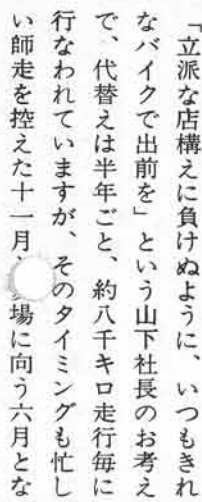 「立派な店構えに負けぬように、いつもきれ
なバイクで出前を」という山下社長のお考え
で、代替えは半年ごと、約八千キロ走行毎に
行なわれていますが、そのタイミングも忙し
い師走を控えた十一月、場に向う六月とな